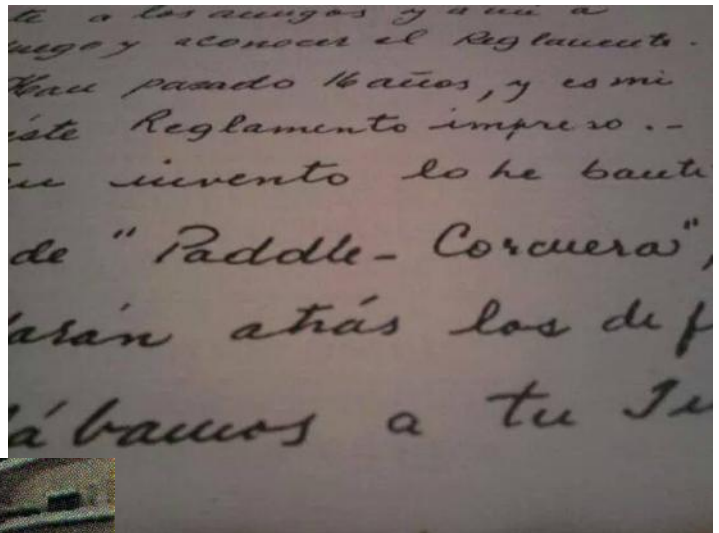 te a los amigos y a mi a
juego y a conocer el Reglamento.
Han pasado 16 años, y es mi
éste Reglamento impreso.-
tu invento lo he bauti
de "Paddle-Corcuera",
darán atrás los
ábamos a tu